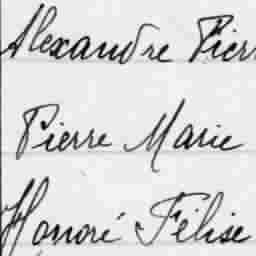 Alexandre Pierr
Pierre Marie
Honoré Félise